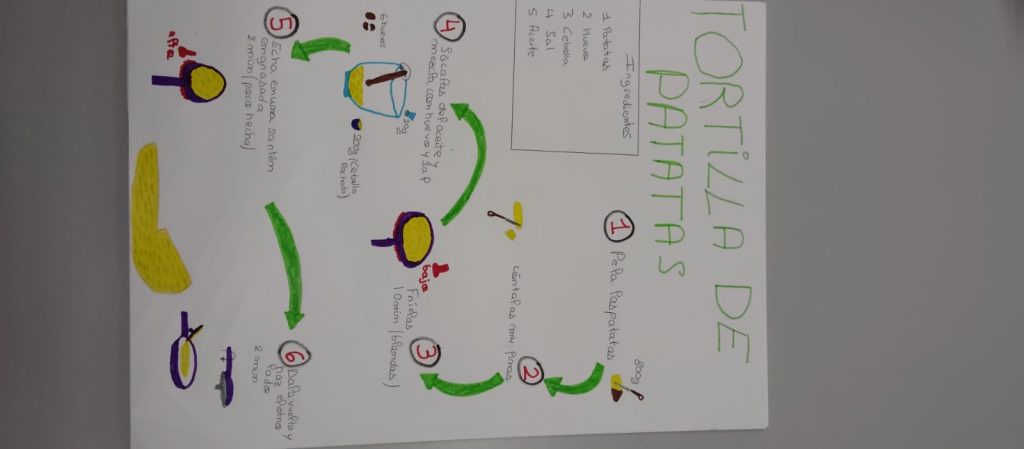 TORTILLA DE
PATATAS
Ingredientes
1 Patatas
2 Huevo
3 Cebolla
4 Sal
5 Aceite
1 Pela las patatas
800g
2
Córtalas muy finas
3
Fríelas
10 min (blandas)
baja
4 Sácalas del aceite y
mezcla con huevo y sal
20g
200g (Cebolla
Pochada)
6 huevos
5 Echa en una sartén
engrasada
2 min (poco hecha)
alta
6 Dala vuelta y
haz el otro
lado
2 min